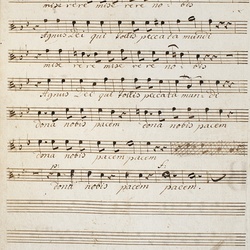 mise rere mise rere no o bis
Agnus Dei qui tollis peccata mundi
mise rere mise re re no o bis
Agnus Dei qui tollis peccata mundi
dona nobis pacem dona nobis pacem
dona nobis pacem pacem
p. f:
dona nobis pacem pacem.